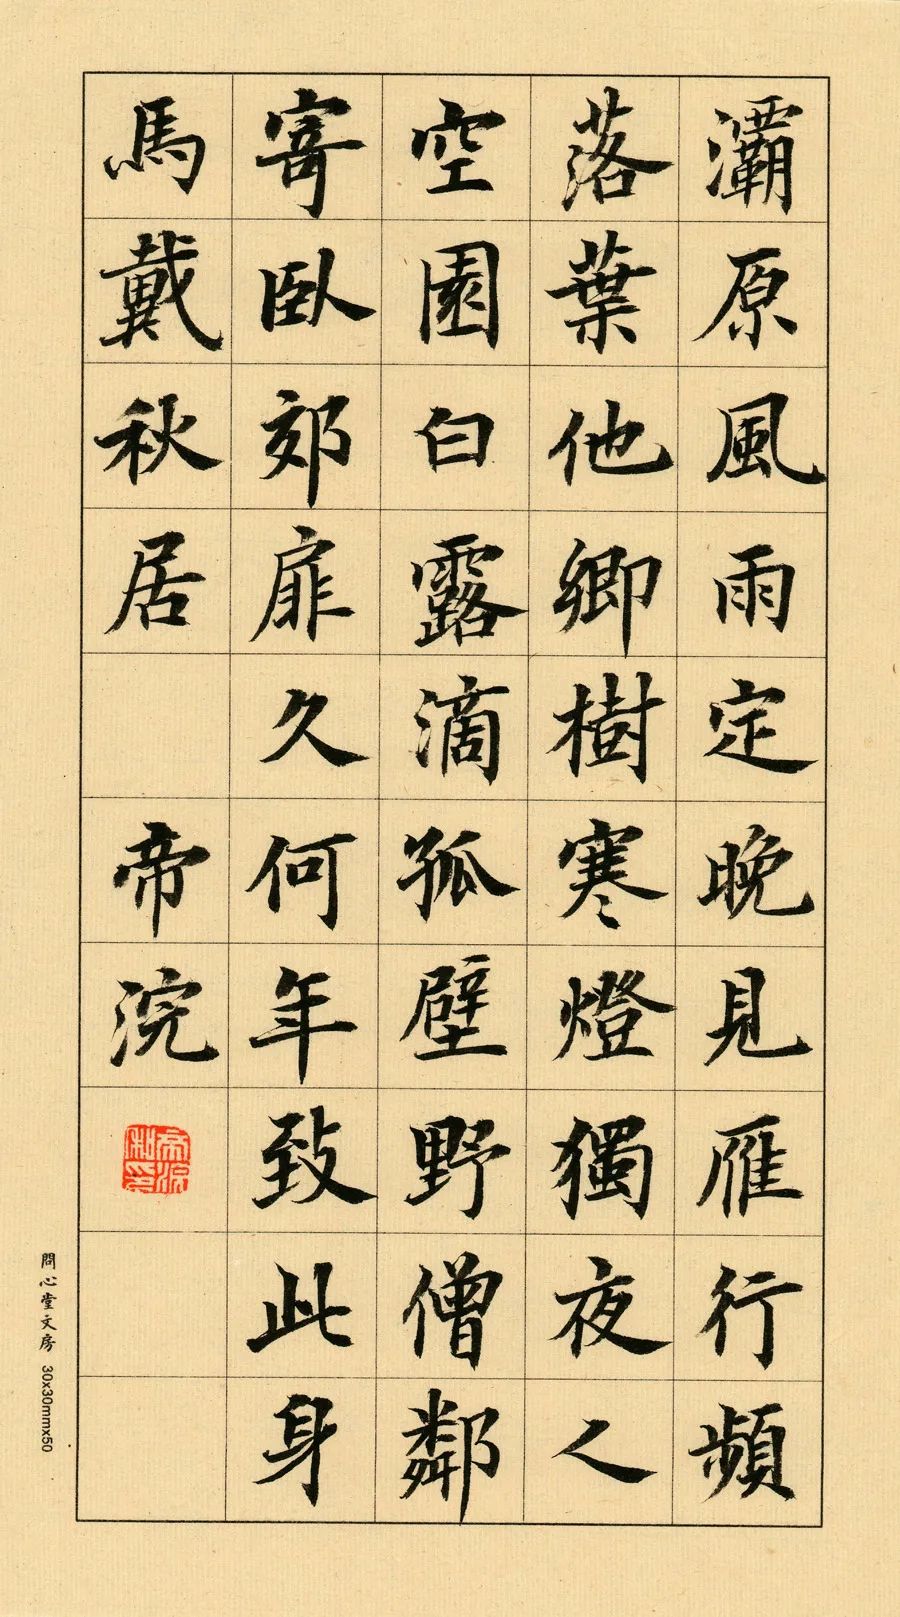 灞原風雨定晚見雁行頻
落葉他鄉樹寒燈獨夜人
空園白露滴孤壁野僧鄰
寄臥郊扉久何年致此身
馬戴秋居 帝浣
問心堂文房 30x30mmx50